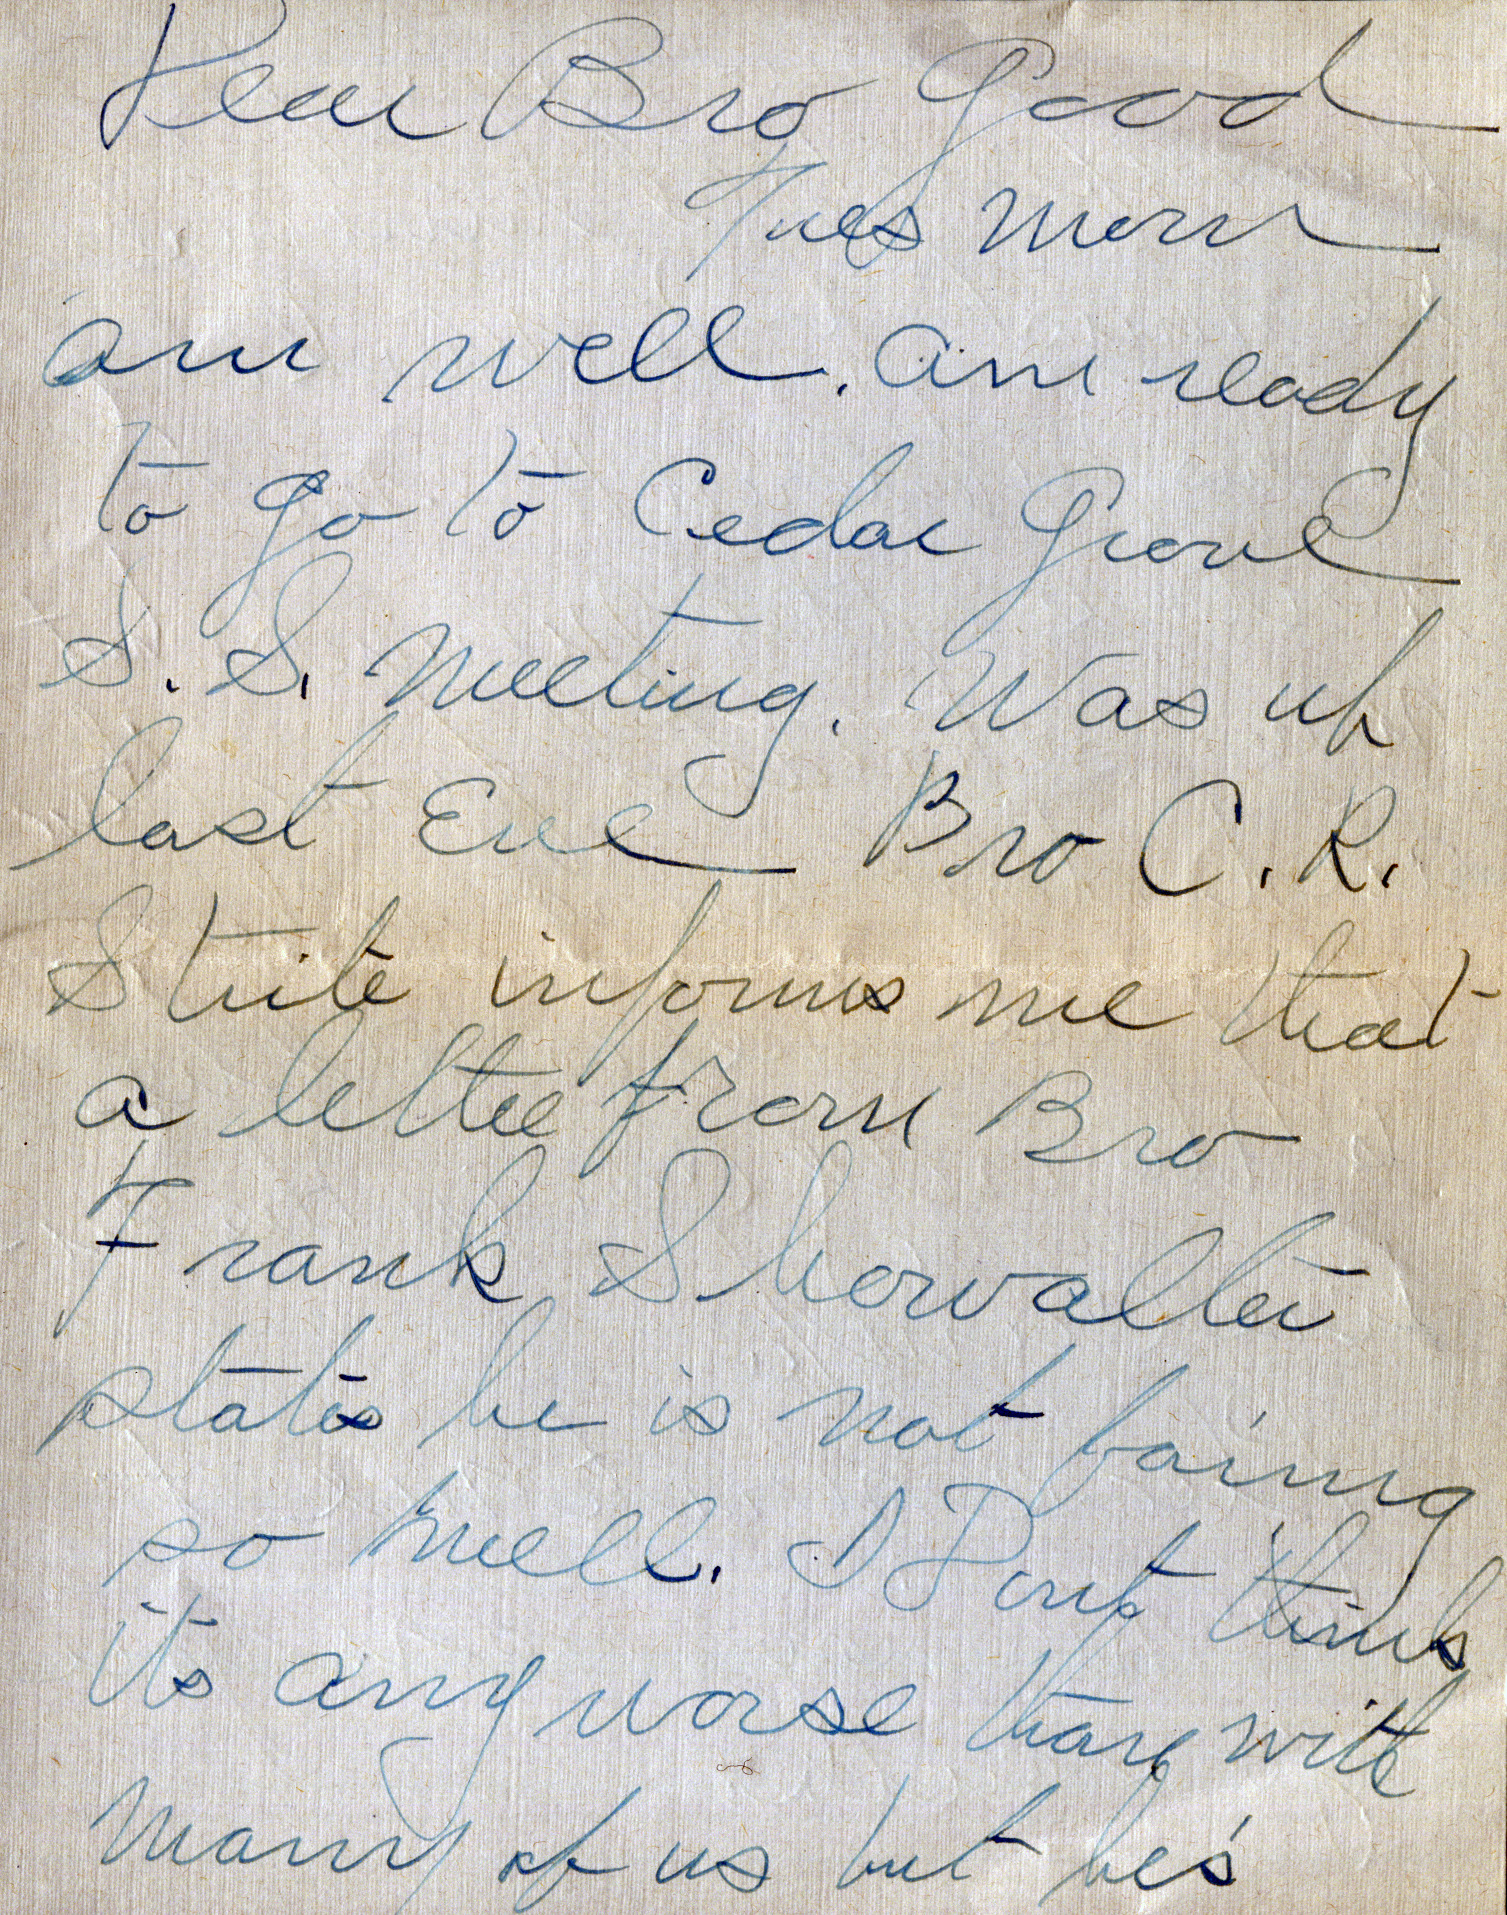 Dear Bro Good
Tues morn
am well. am ready
to go to Cedar Grove
S. S. meeting. Was up
last Eve Bro C. R.
Strite informs me that
a letter from Bro
Frank Showalter
states he is not faring
so well. I Dont think
its any worse than with
many of us but he's